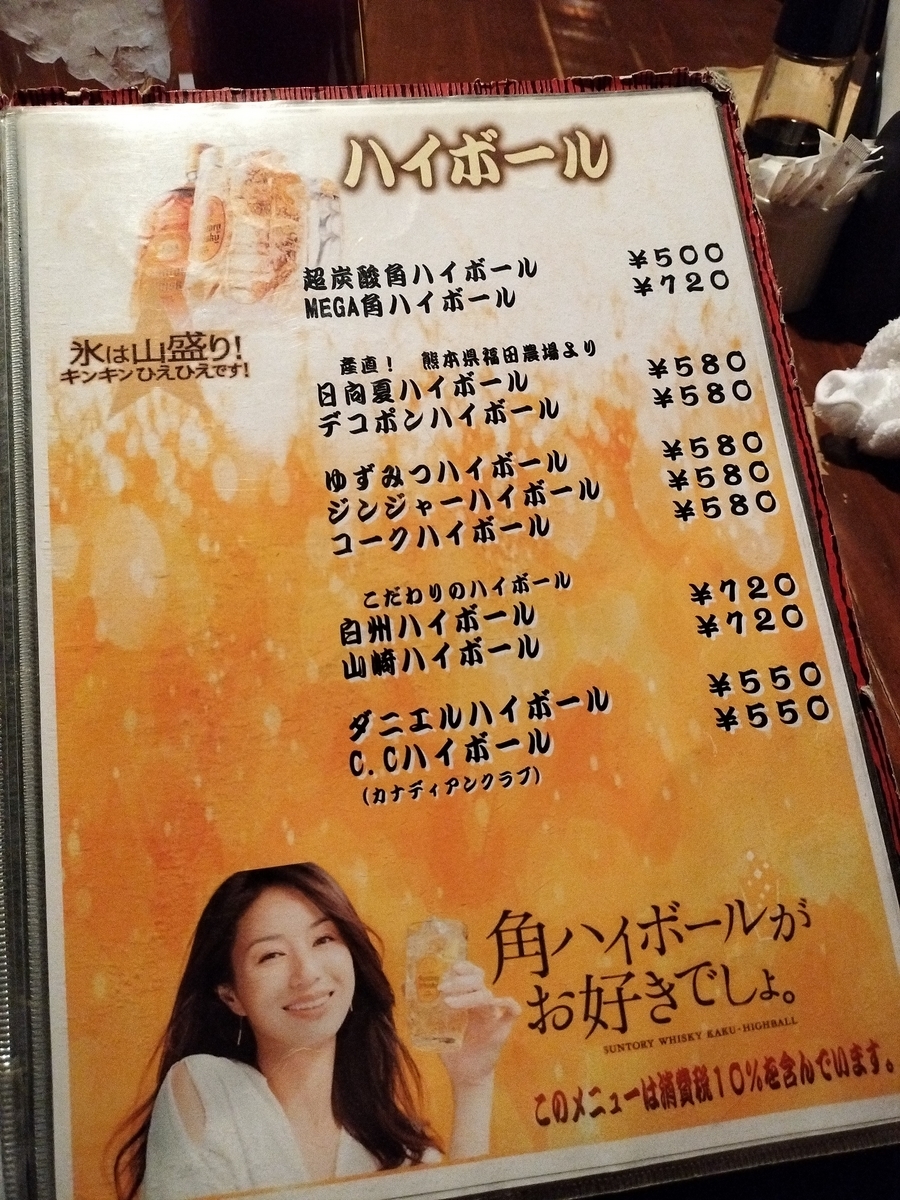 ハイボール
超炭酸角ハイボール ¥500
MEGA角ハイボール ¥720
氷は山盛り!
キンキンひえひえです!
産直! 熊本県福田農場より
日向夏ハイボール ¥580
デコポンハイボール ¥580
ゆずみつハイボール ¥580
ジンジャーハイボール ¥580
コークハイボール ¥580
こだわりのハイボール
白州ハイボール ¥720
山崎ハイボール ¥720
ダニエルハイボール ¥550
C.Cハイボール ¥550
(カナディアンクラブ)
角ハイボールが
お好きでしょ。
SUNTORY WHISKY KAKU-HIGHBALL
このメニューは消費税10%を含んでいます。